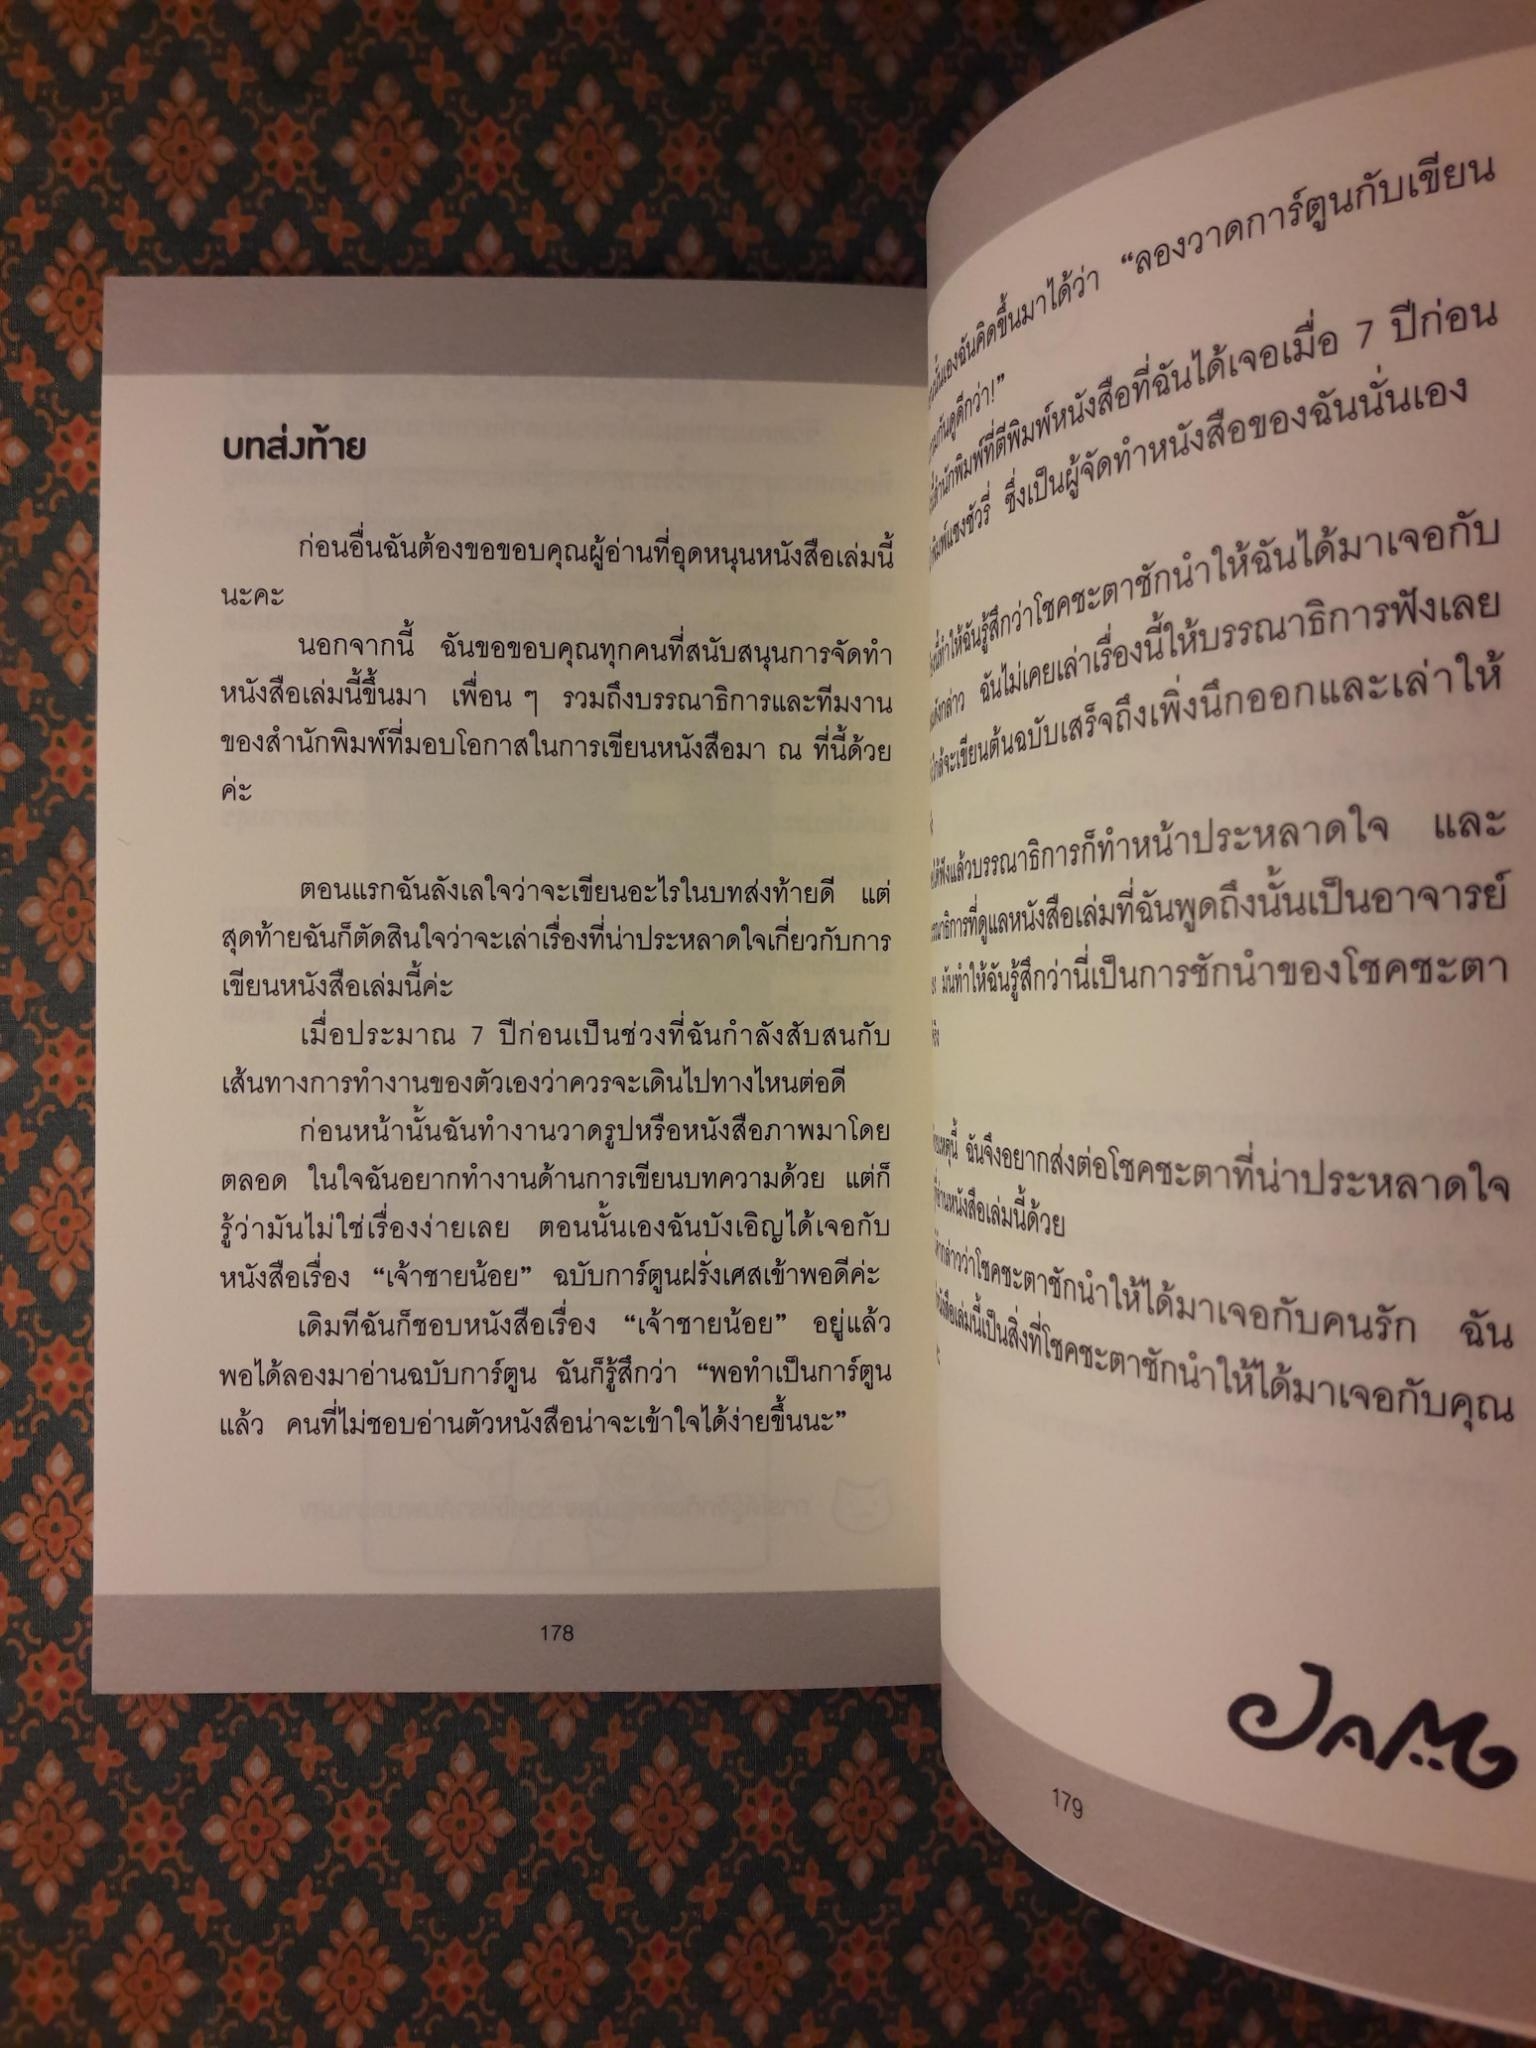 บทส่งท้าย
ก่อนอื่นฉันต้องขอขอบคุณผู้อ่านที่อุดหนุนหนังสือเล่มนี้
นะคะ
นอกจากนี้ ฉันขอขอบคุณทุกคนที่สนับสนุนการจัดทำ
หนังสือเล่มนี้ขึ้นมา เพื่อน ๆ รวมถึงบรรณาธิการและทีมงาน
ของสำนักพิมพ์ที่มอบโอกาสในการเขียนหนังสือมา ณ ที่นี้ด้วย
ค่ะ
ตอนแรกฉันลังเลใจว่าจะเขียนอะไรในบทส่งท้ายดี แต่
สุดท้ายฉันก็ตัดสินใจว่าจะเล่าเรื่องที่น่าประหลาดใจเกี่ยวกับการ
เขียนหนังสือเล่มนี้ค่ะ
เมื่อประมาณ 7 ปีก่อนเป็นช่วงที่ฉันกำลังสับสนกับ
เส้นทางการทำงานของตัวเองว่าควรจะเดินไปทางไหนต่อดี
ก่อนหน้านั้นฉันทำงานวาดรูปหรือหนังสือภาพมาโดย
ตลอด ในใจฉันอยากทำงานด้านการเขียนบทความด้วย แต่ก็
รู้ว่ามันไม่ใช่เรื่องง่ายเลย ตอนนั้นเองฉันบังเอิญได้เจอกับ
หนังสือเรื่อง “เจ้าชายน้อย” ฉบับการ์ตูนฝรั่งเศสเข้าพอดีค่ะ
เดิมทีฉันก็ชอบหนังสือเรื่อง “เจ้าชายน้อย” อยู่แล้ว
พอได้ลองมาอ่านฉบับการ์ตูน ฉันก็รู้สึกว่า “พอทำเป็นการ์ตูน
แล้ว คนที่ไม่ชอบอ่านตัวหนังสือน่าจะเข้าใจได้ง่ายขึ้นนะ”
178
ฉันคิดขึ้นมาได้ว่า “ลองวาดการ์ตูนกับเขียน
กันดูดีกว่า!”
สำนักพิมพ์ที่ตีพิมพ์หนังสือที่ฉันได้เจอเมื่อ 7 ปีก่อน
ซึ่งเป็นผู้จัดทำหนังสือของฉันนั่นเอง
ทำให้ฉันรู้สึกว่าโชคชะตาชักนำให้ฉันได้มาเจอกับ
ฉันไม่เคยเล่าเรื่องนี้ให้บรรณาธิการฟังเลย
จะเขียนต้นฉบับเสร็จถึงเพิ่งนึกออกและเล่าให้
ฟังแล้วบรรณาธิการก็ทำหน้าประหลาดใจ และ
ที่ดูแลหนังสือเล่มที่ฉันพูดถึงนั้นเป็นอาจารย์
มันทำให้ฉันรู้สึกว่านี่เป็นการชักนำของโชคชะตา
เหตุนี้ ฉันจึงอยากส่งต่อโชคชะตาที่น่าประหลาดใจ
อ่านหนังสือเล่มนี้ด้วย
กล่าวว่าโชคชะตาชักนำให้ได้มาเจอกับคนรัก ฉัน
เล่มนี้เป็นสิ่งที่โชคชะตาชักนำให้ได้มาเจอกับคุณ
JAM
179